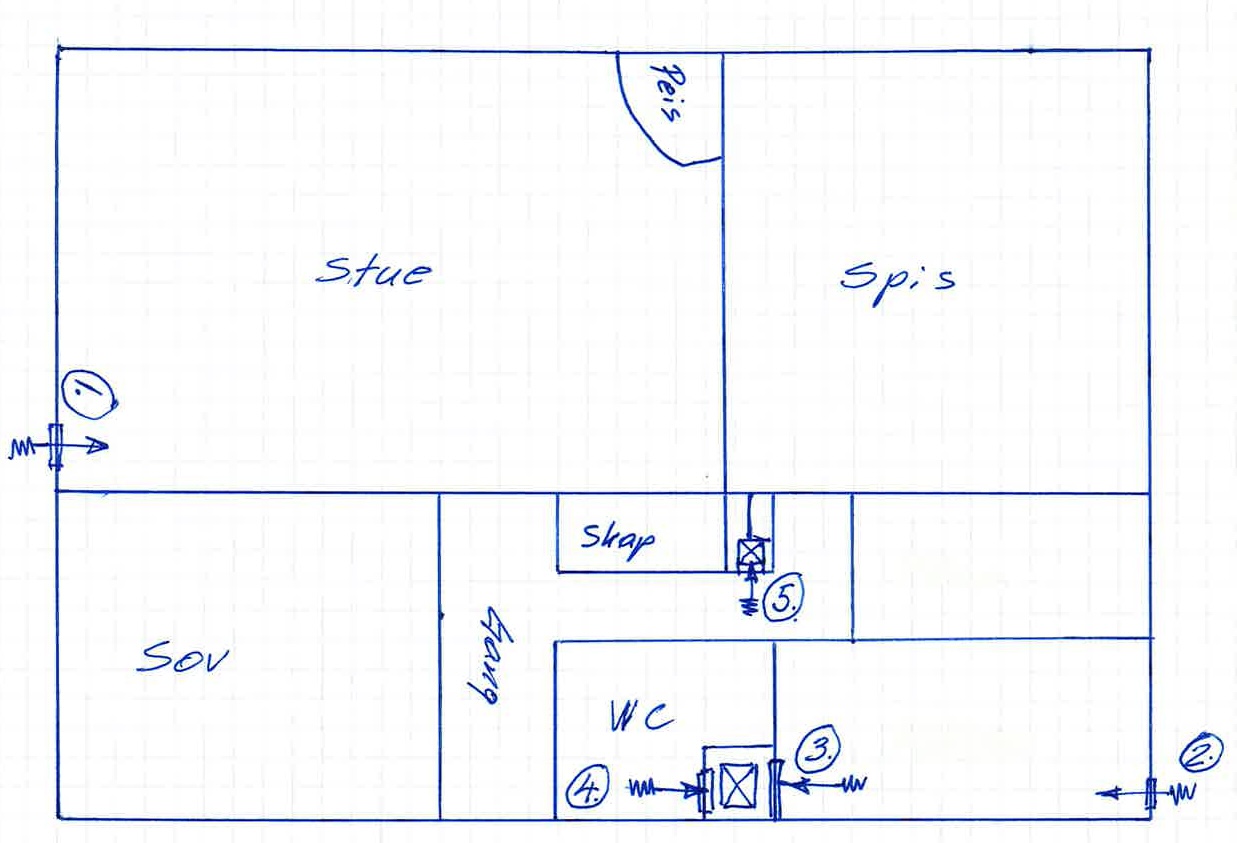 Peis
Stue
Spis
1.
Skap
5.
Sov
Gang
WC
3.
2.
4.